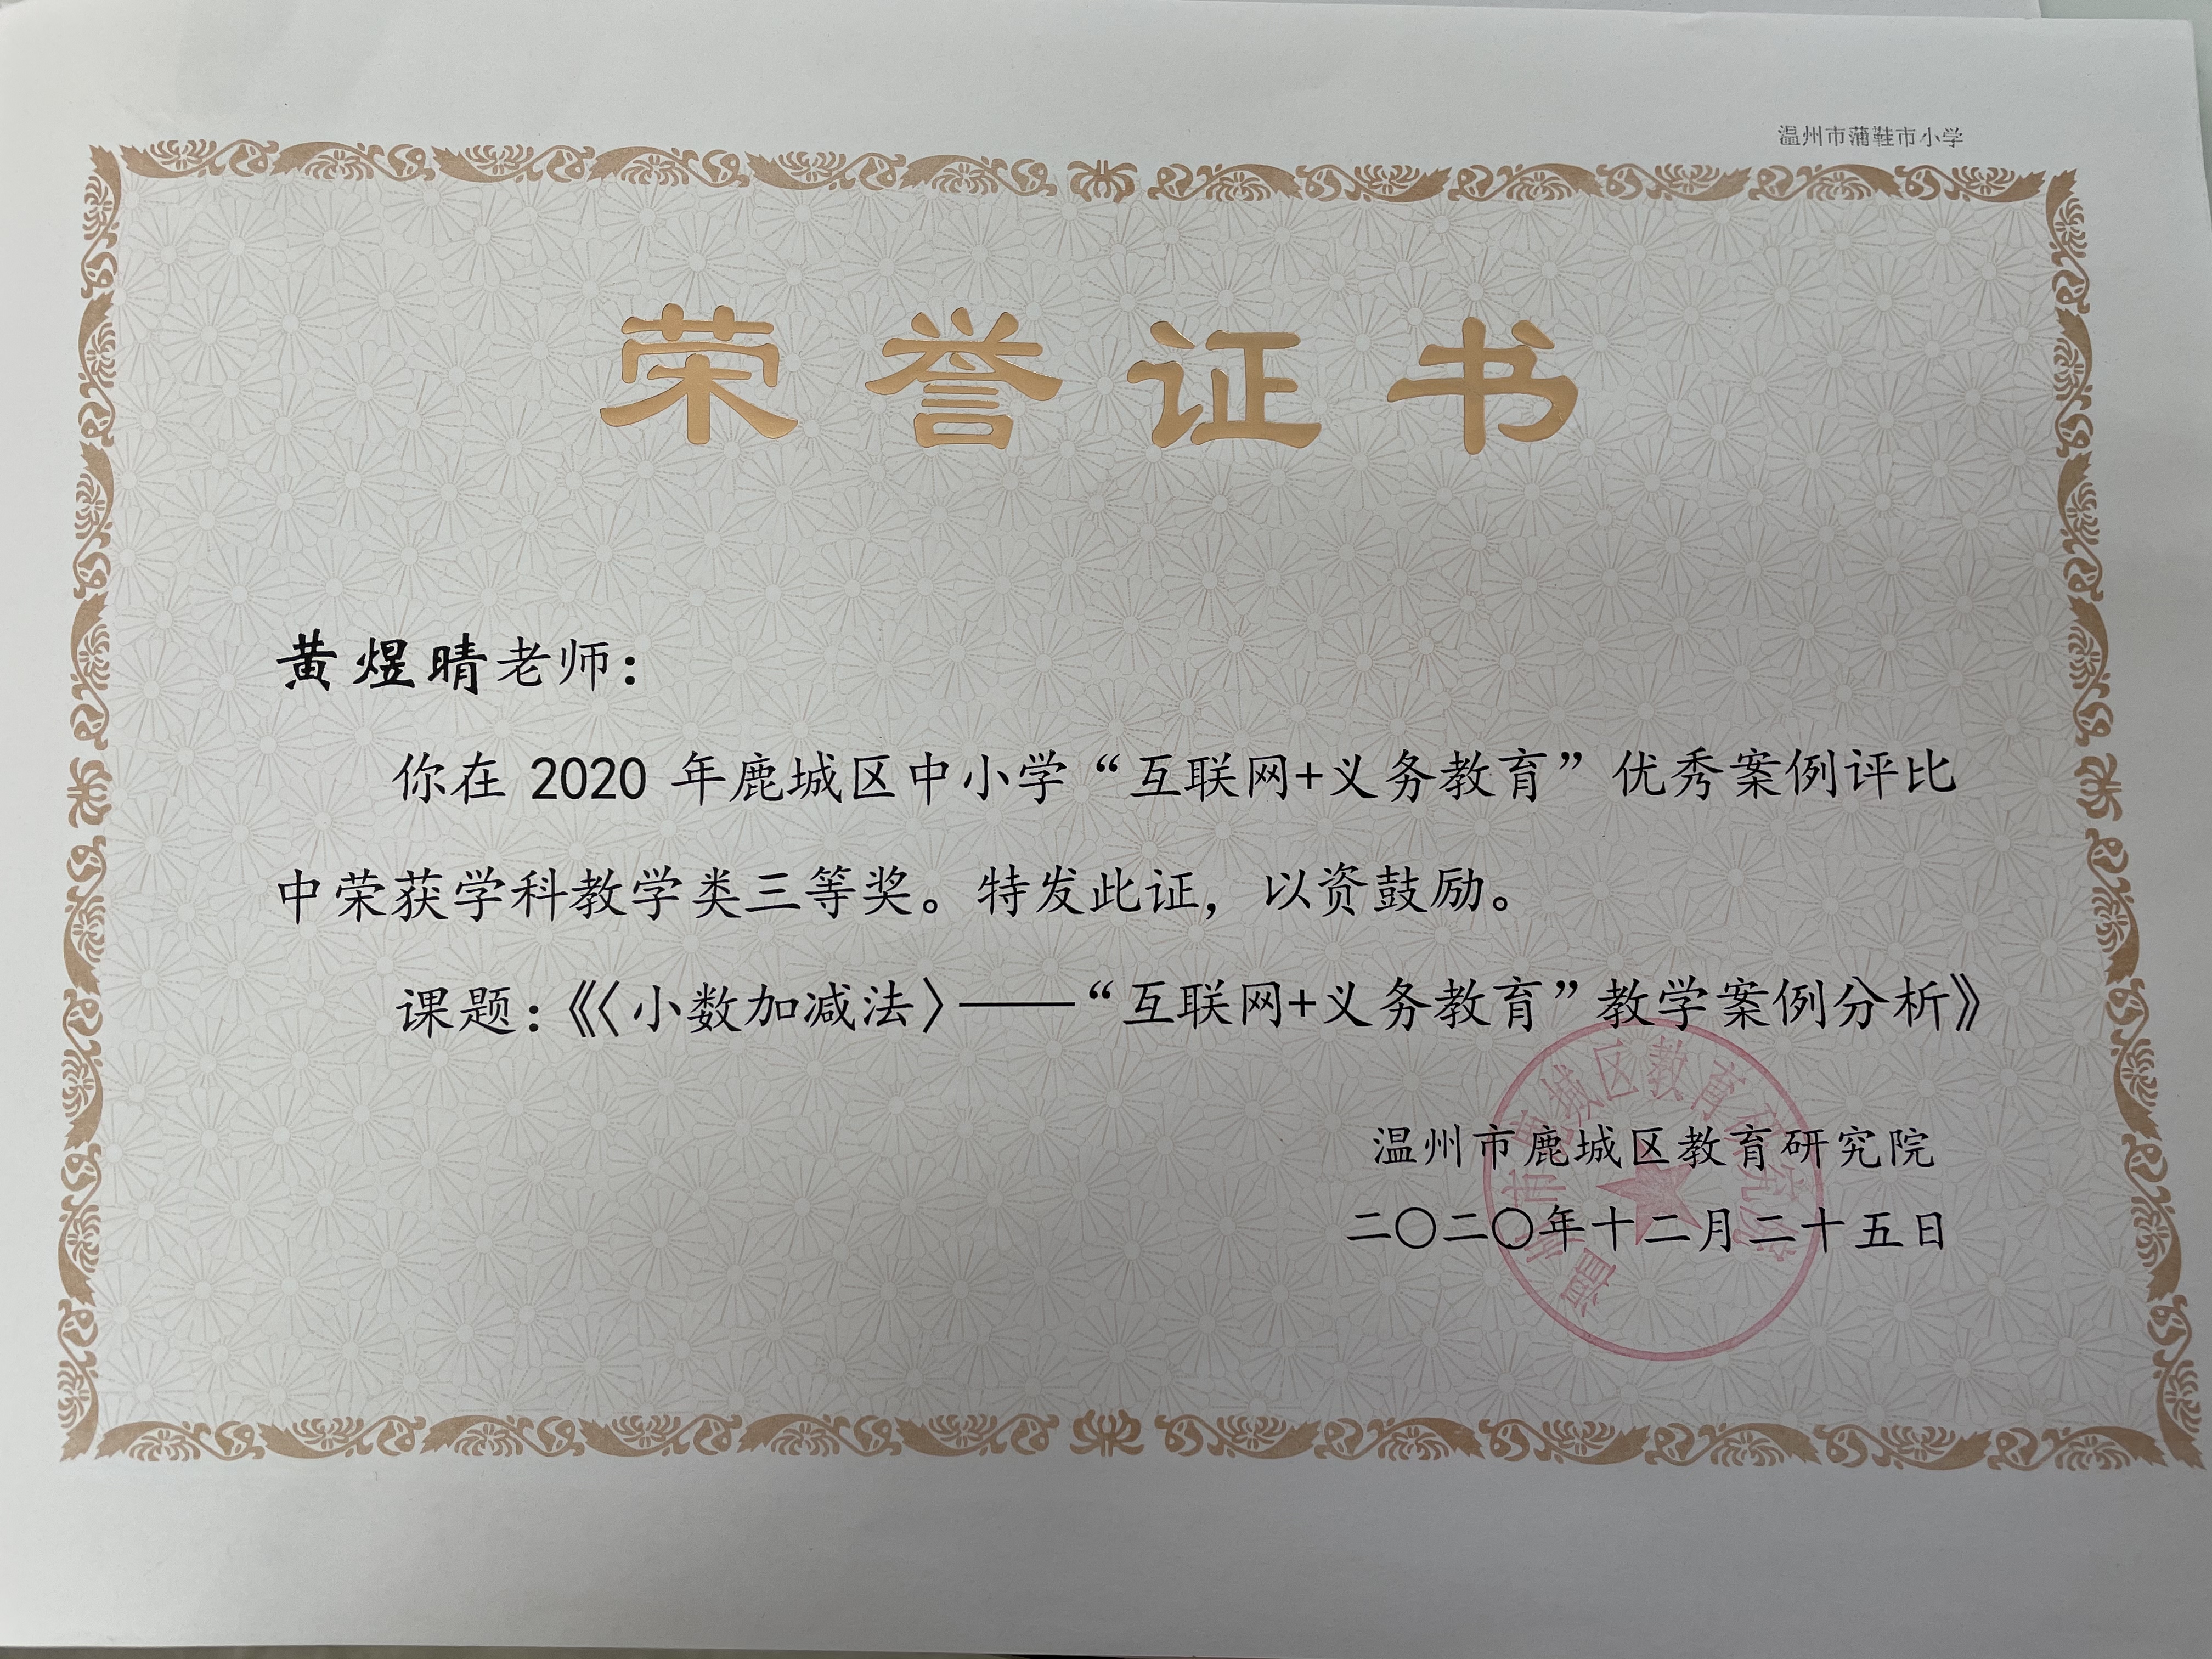 温州市蒲鞋市小学
荣誉证书
黄煜晴老师：
你在 2020 年鹿城区中小学“互联网+义务教育”优秀案例评比
中荣获学科教学类三等奖。特发此证，以资鼓励。
课题：《〈小数加减法〉——“互联网+义务教育”教学案例分析》
温州市鹿城区教育研究院
二〇二〇年十二月二十五日
温州市鹿城区教育研究院